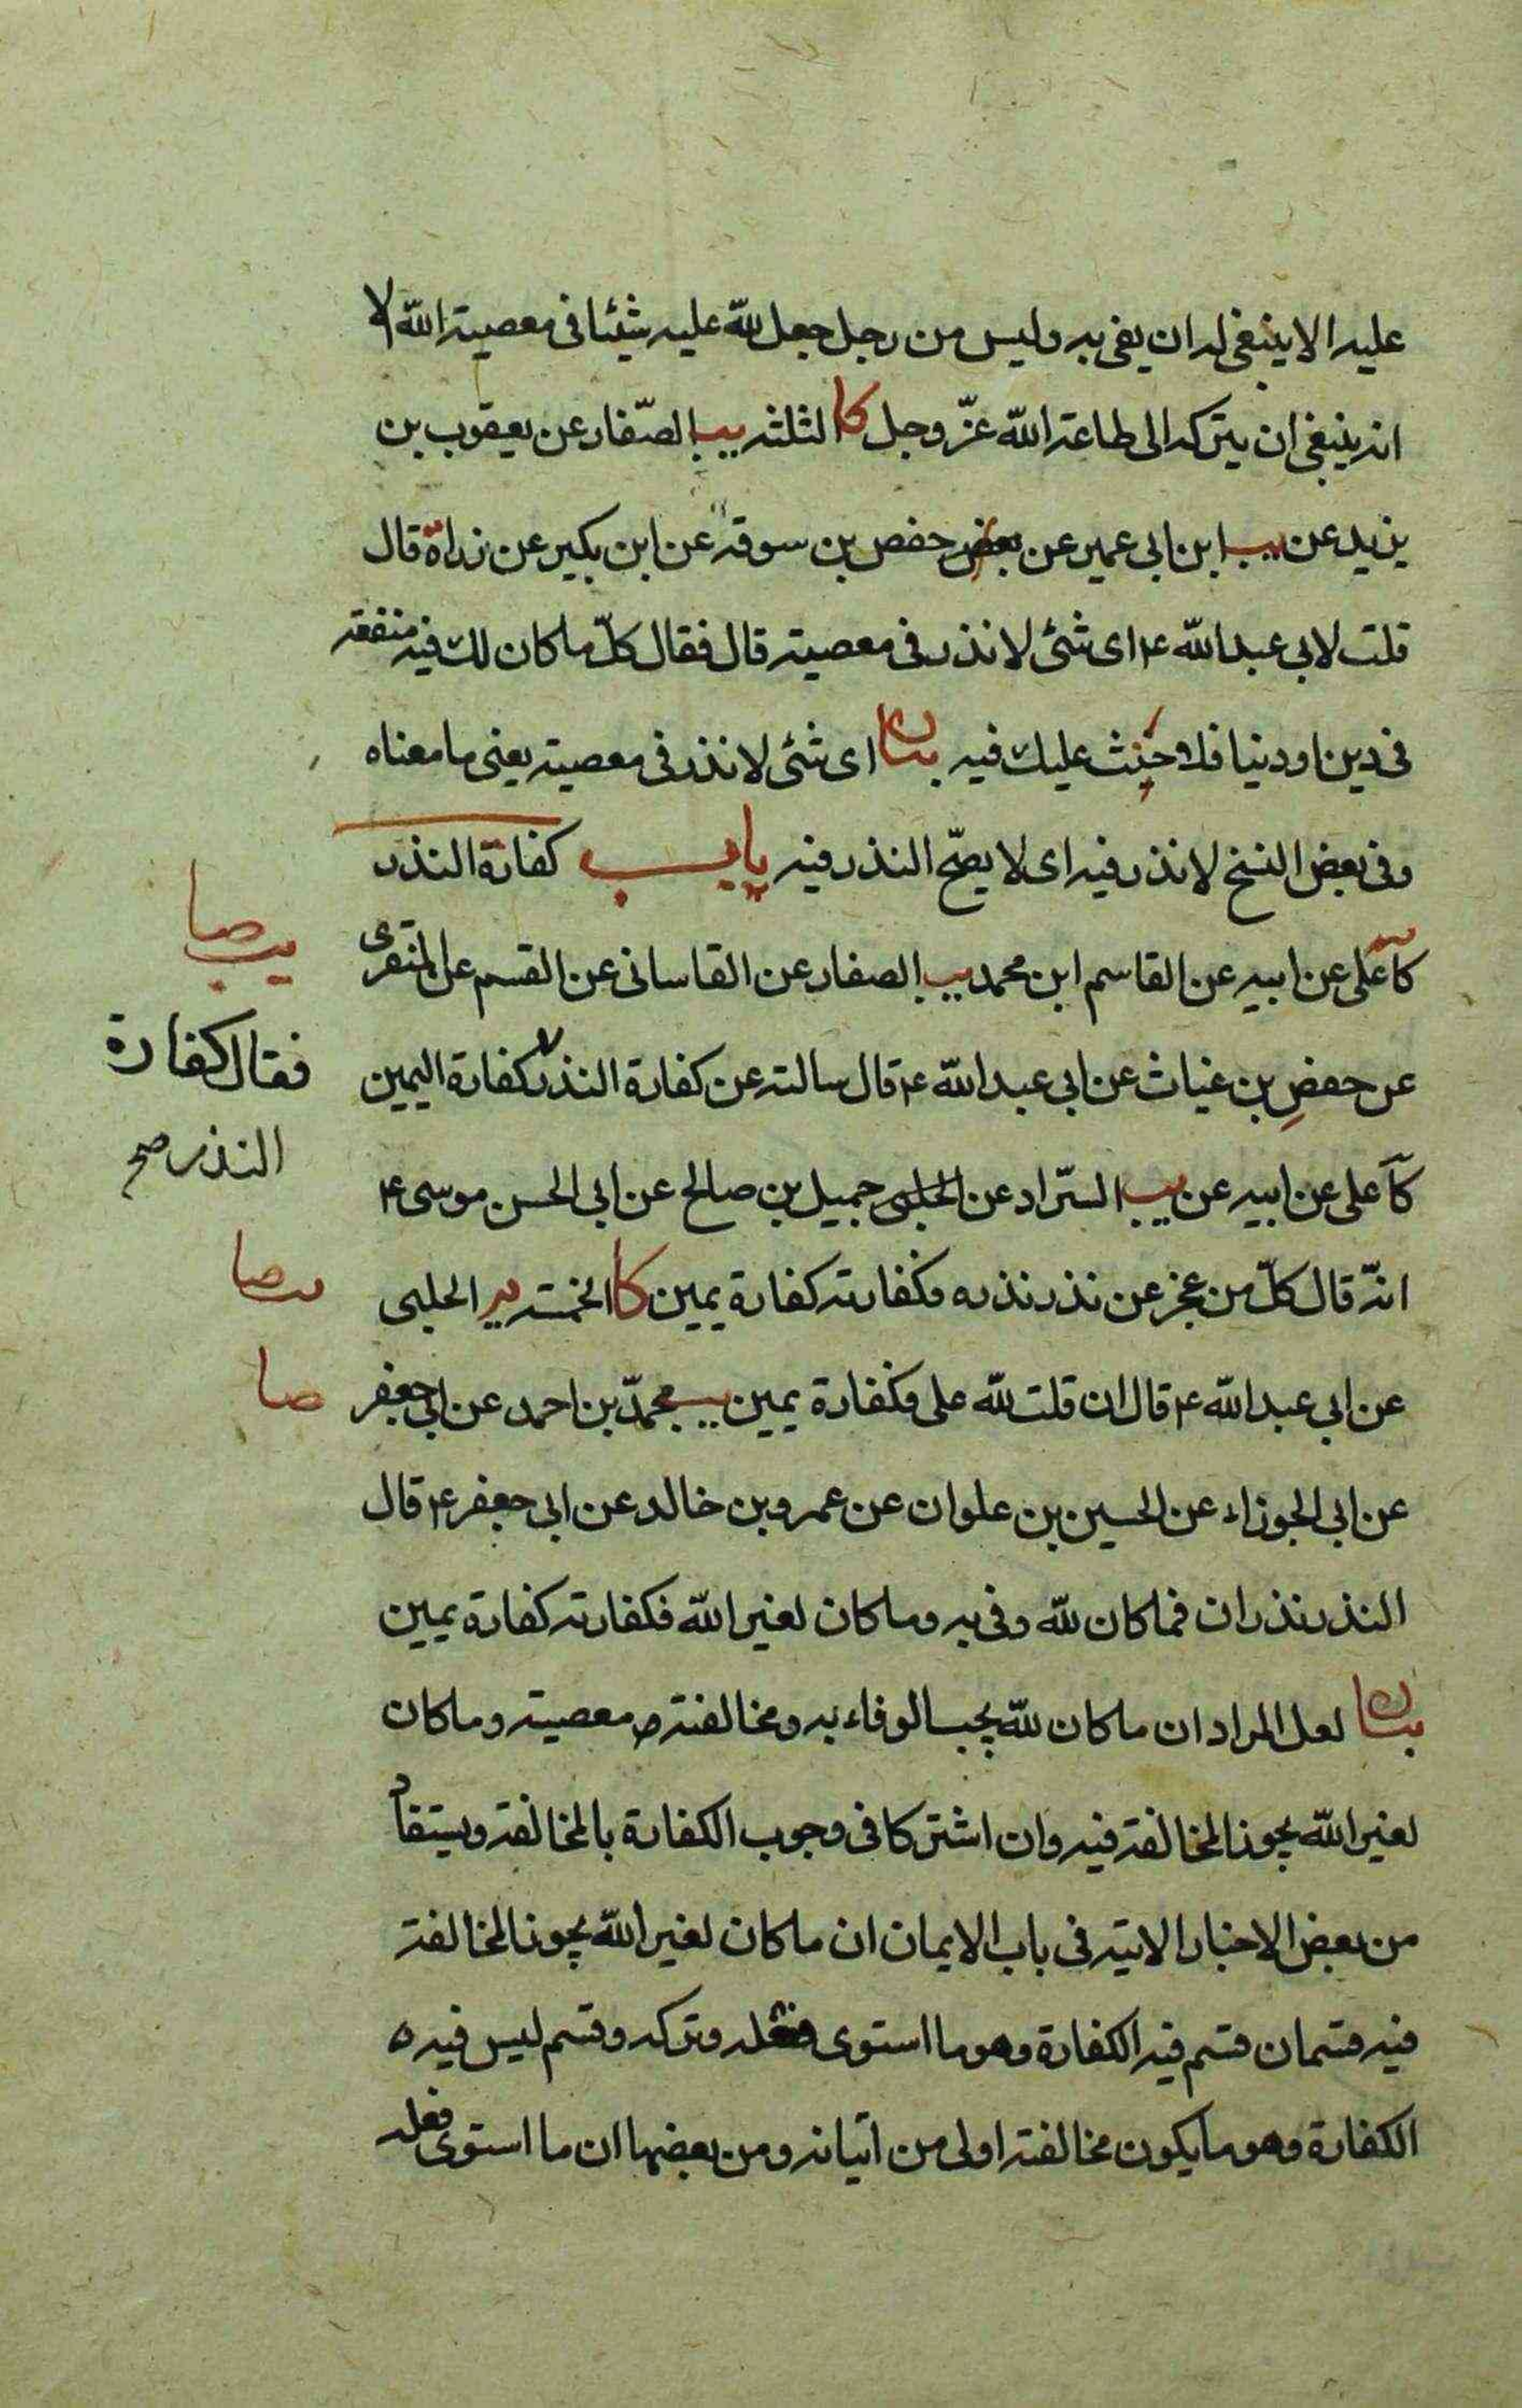 عليه الا ينبغى له ان يفى به وليس من رجل جعل لله عليه شيئا فى معصية الله الا
انه ينبغى ان يتركه الى طاعة الله عزّ وجل كا الثلثه يب الصّفار عن يعقوب بن
يزيد عن يب ابن ابى عمير عن بعض حفص بن سوقة عن ابن بكير عن زرارة قال
قلت لابى عبد الله ع اى شئ لا نذر فى معصية قال فقال كلّ ما كان لك فيه منفعة
فى دين او دنيا فلا حنث عليك فيه بيان اى شئ لا نذر فى معصية يعنى ما معناه
وفى بعض النسخ لا نذر فيه اى لا يصحّ النذر فيه باب كفارة النذر
كا على عن ابيه عن القاسم ابن محمد يب الصفار عن القاسانى عن القسم عن المنقرى
عن حفص بن غياث عن ابى عبد الله ع قال سالته عن كفارة النذر كفارة اليمين
كا على عن ابيه عن يب السّراد عن الحلبى جميل بن صالح عن ابى الحسن موسى ع
انّه قال كلّ من عجز عن نذر نذره فكفارته كفارة يمين كا الخمسة يب الحلبى
عن ابى عبد الله ع قال ان قلت لله على فكفارة يمين يب محمّد بن احمد عن ابى جعفر
عن ابى الجوزاء عن الحسين بن علوان عن عمرو بن خالد عن ابى جعفر ع قال
النذر نذران فما كان لله وفى به وما كان لغير الله فكفارته كفارة يمين
بيان لعل المراد ان ما كان لله يجب الوفاء به ومخالفته معصية وما كان
لغير الله يجوز المخالفة فيه وان اشتركا فى وجوب الكفارة بالمخالفة ويستفاد
من بعض الاخبار الاتية فى باب الايمان ان ما كان لغير الله يجوز المخالفة
فيه قسمان قسم فيه الكفارة وهو ما استوى فعله وتركه وقسم ليس فيه
الكفارة وهو ما يكون مخالفته اولى من اتيانه ومن بعضها ان ما استوى فعله
يب صا
فقال كفارة
النذر صح
يب صا
صا